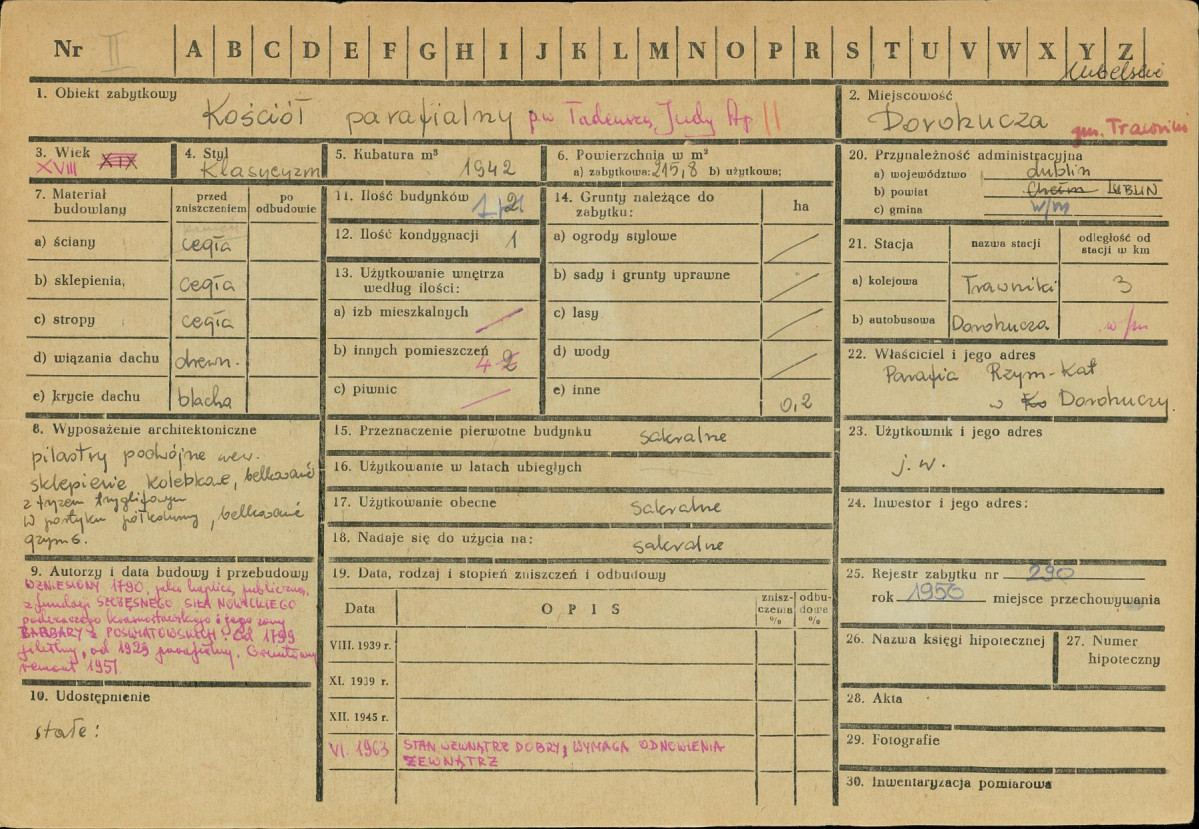 Nr II A B C D E F G H I J K L M N O P R S T U V W X Y Z
lubelskie
1. Obiekt zabytkowy
Kościół parafialny pw Tadeusza Judy Ap II
2. Miejscowość
Dorohucza gm. Trawniki
3. Wiek XIX
XVIII
4. Styl
Klasycyzm
5. Kubatura m³
1942
6. Powierzchnia w m²
a) zabytkowa: 215,8 b) użytkowa:
7. Materiał budowlany
przed zniszczeniem
po odbudowie
a) ściany cegła
b) sklepienia, cegła
c) stropy cegła
d) wiązania dachu drewn.
e) krycie dachu blacha
8. Wyposażenie architektoniczne
pilastry podwójne wew.
sklepienie kolebkowe, belkowanie
z fryzem tryglifowym
w portyku półkolumny, belkowanie
gzyms.
9. Autorzy i data budowy i przebudowy
WZNIESIONY 1790, jako kaplica publiczna,
z fundacji SZCZĘSNEGO SIŁA NOWICKIEGO
podczaszego krasnostawskiego i jego żony
BARBARY z POSWIATOWSKICH. Od 1799
filialny, od 1929 parafialny. Gruntowny
remont 1951.
10. Udostępnienie
stałe:
11. Ilość budynków 2
12. Ilość kondygnacji 1
13. Użytkowanie wnętrza
według ilości:
a) izb mieszkalnych
b) innych pomieszczeń 4 2
c) piwnic
14. Grunty należące do
zabytku:
ha
a) ogrody stylowe
b) sady i grunty uprawne
c) lasy
d) wody
e) inne 0,2
15. Przeznaczenie pierwotne budynku sakralne
16. Użytkowanie w latach ubiegłych
17. Użytkowanie obecne sakralne
18. Nadaje się do użycia na: sakralne
19. Data, rodzaj i stopień zniszczeń i odbudowy
Data OPIS zniszczenia % odbudowe %
VIII. 1939 r.
XI. 1939 r.
XII. 1945 r.
VI. 1963 STAN WEWNĄTRZ DOBRY, WYMAGA ODNOWIENIA
ZEWNĄTRZ
20. Przynależność administracyjna
a) województwo lublin
b) powiat Chełm LUBLIN
c) gmina w/m
21. Stacja
nazwa stacji
odległość od stacji w km
a) kolejowa Trawniki 3
b) autobusowa Dorohucza w/m
22. Właściciel i jego adres
Parafia Rzym-Kat
w Dorohuczy.
23. Użytkownik i jego adres
j.w.
24. Inwestor i jego adres:
25. Rejestr zabytku nr 290
rok 1950 miejsce przechowywania
26. Nazwa księgi hipotecznej
27. Numer hipoteczny
28. Akta
29. Fotografie
30. Inwentaryzacja pomiarowa